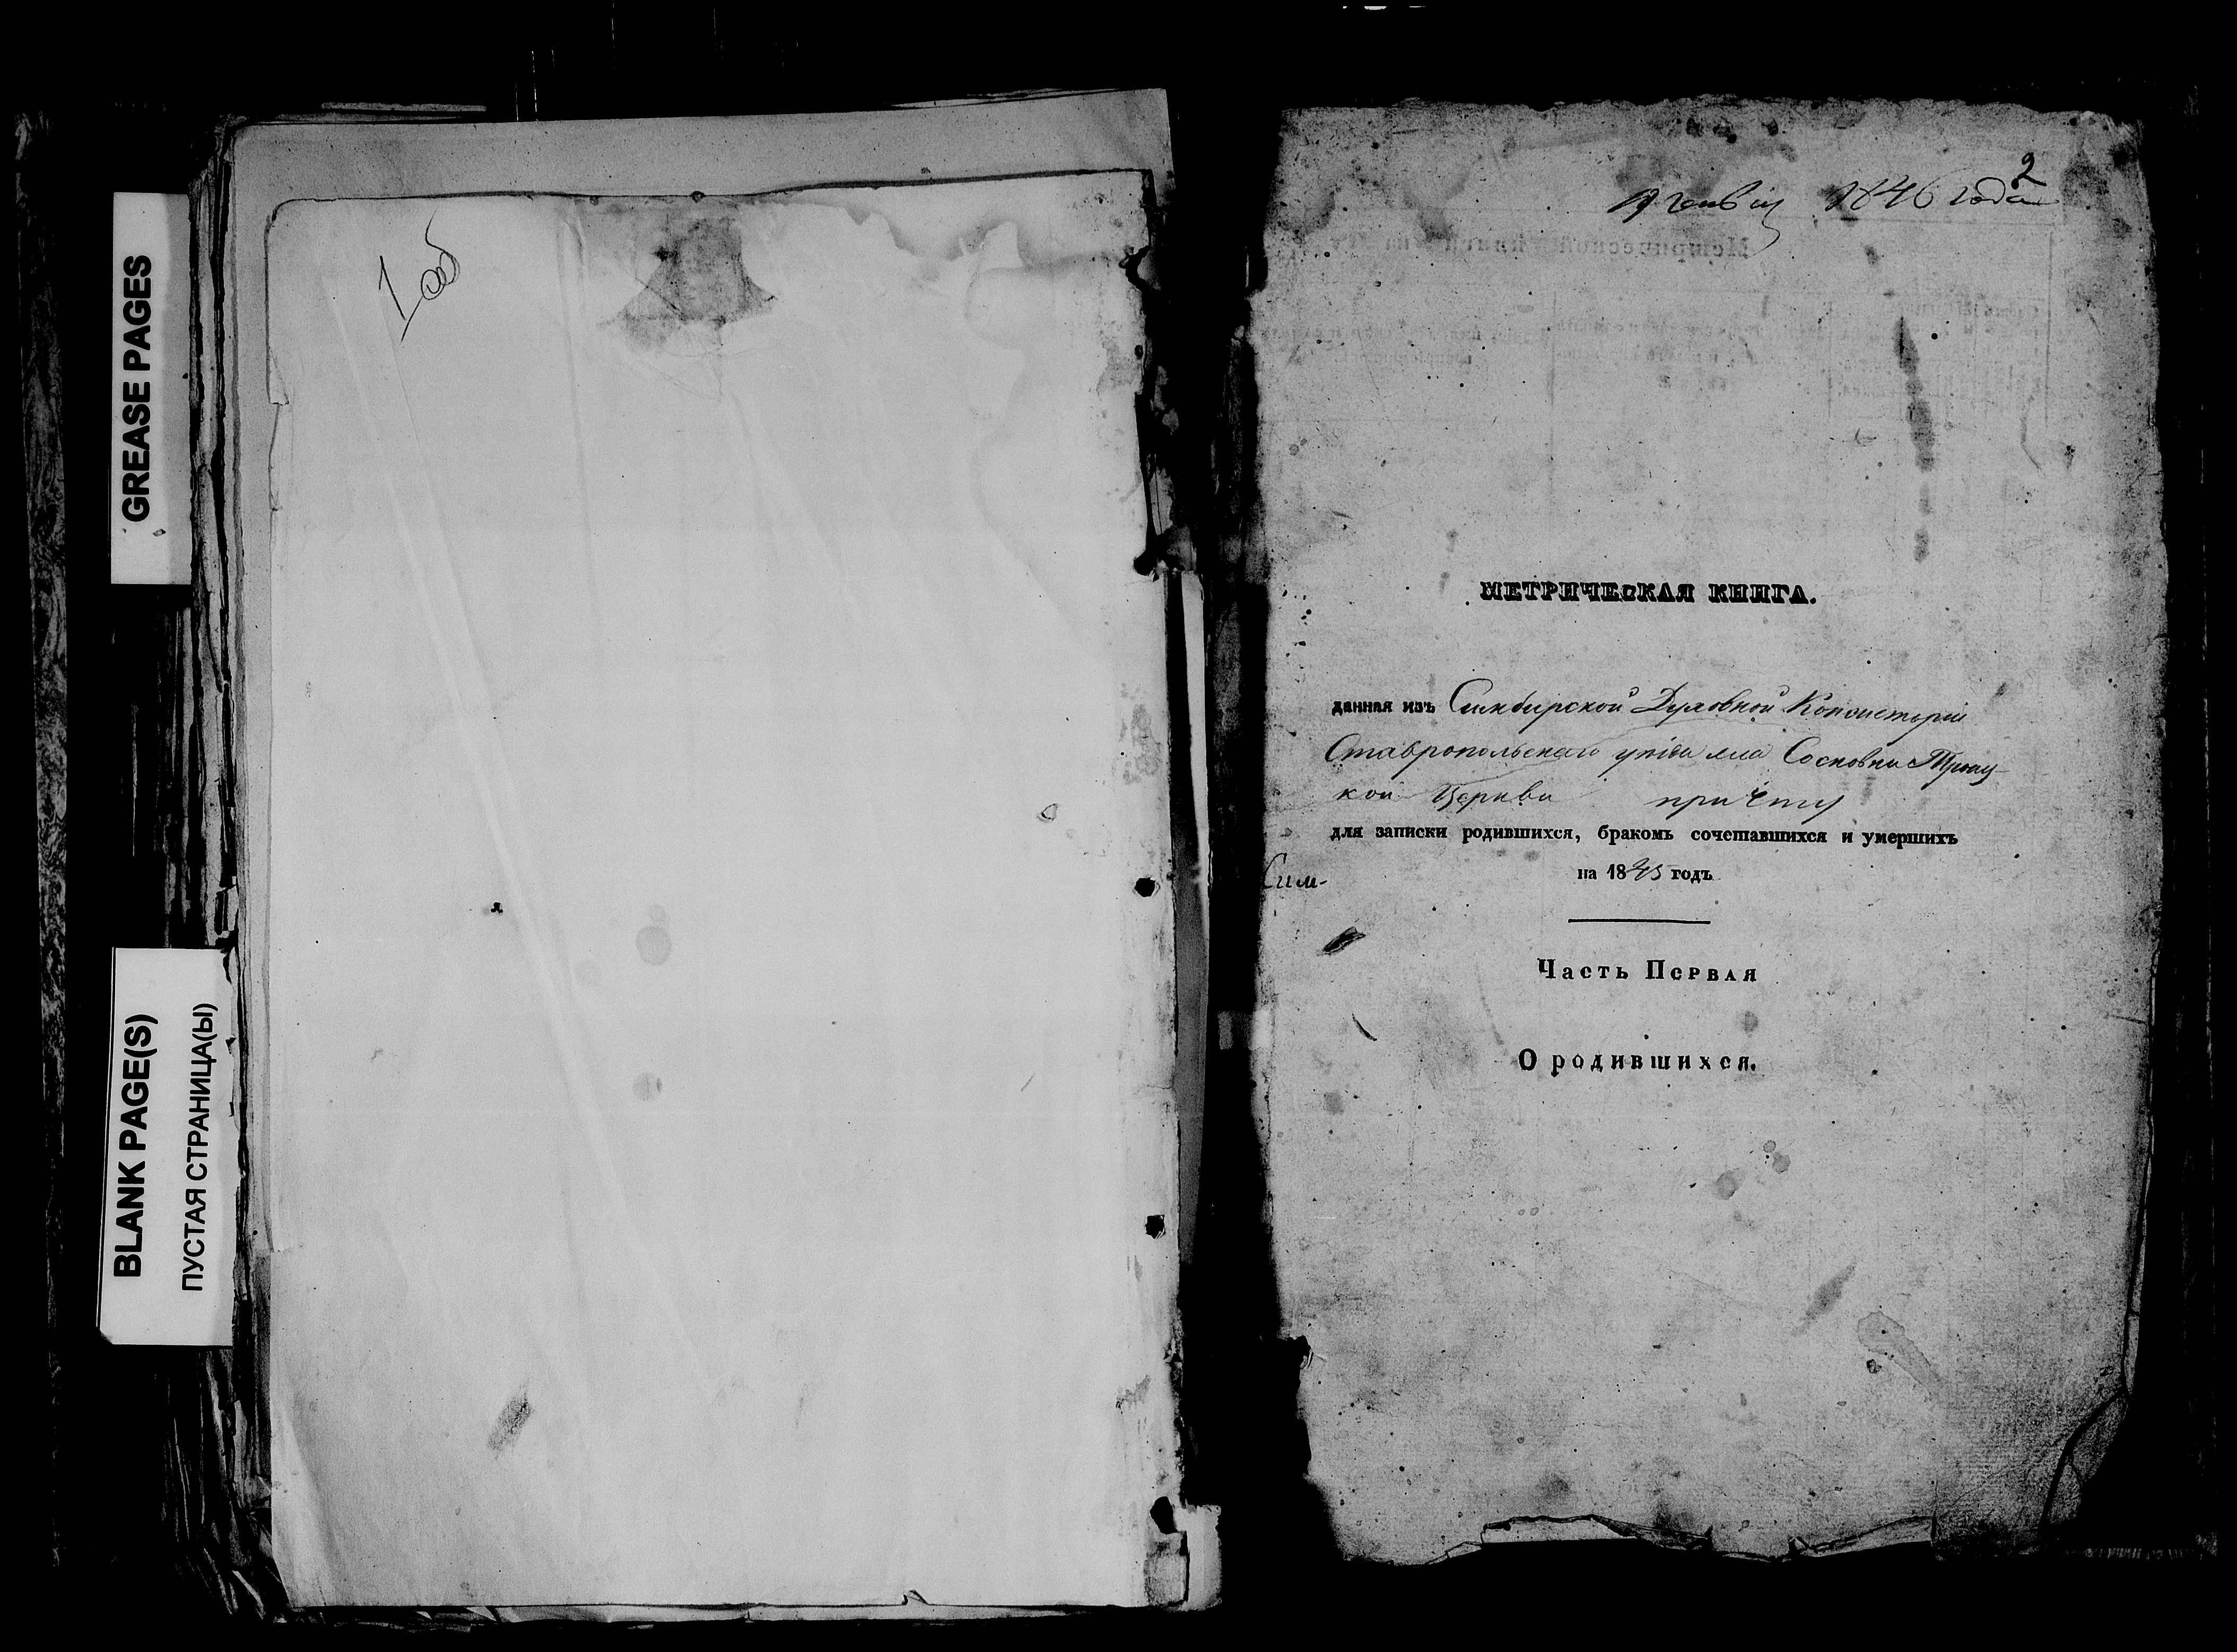 GREASE PAGES
BLANK PAGE(S)
ПУСТАЯ СТРАНИЦА(Ы)
1 об
2
1846 года
МЕТРИЧЕСКАЯ КНИГА.
данная изъ Симбирской Духовной Консисторіи
Ставропольскаго уѣзда села Сосновки Троиц-
кой Церкви причту
для записки родившихся, бракомъ сочетавшихся и умершихъ
на 1845 годъ
Сим-
Часть Первая
О родившихся.